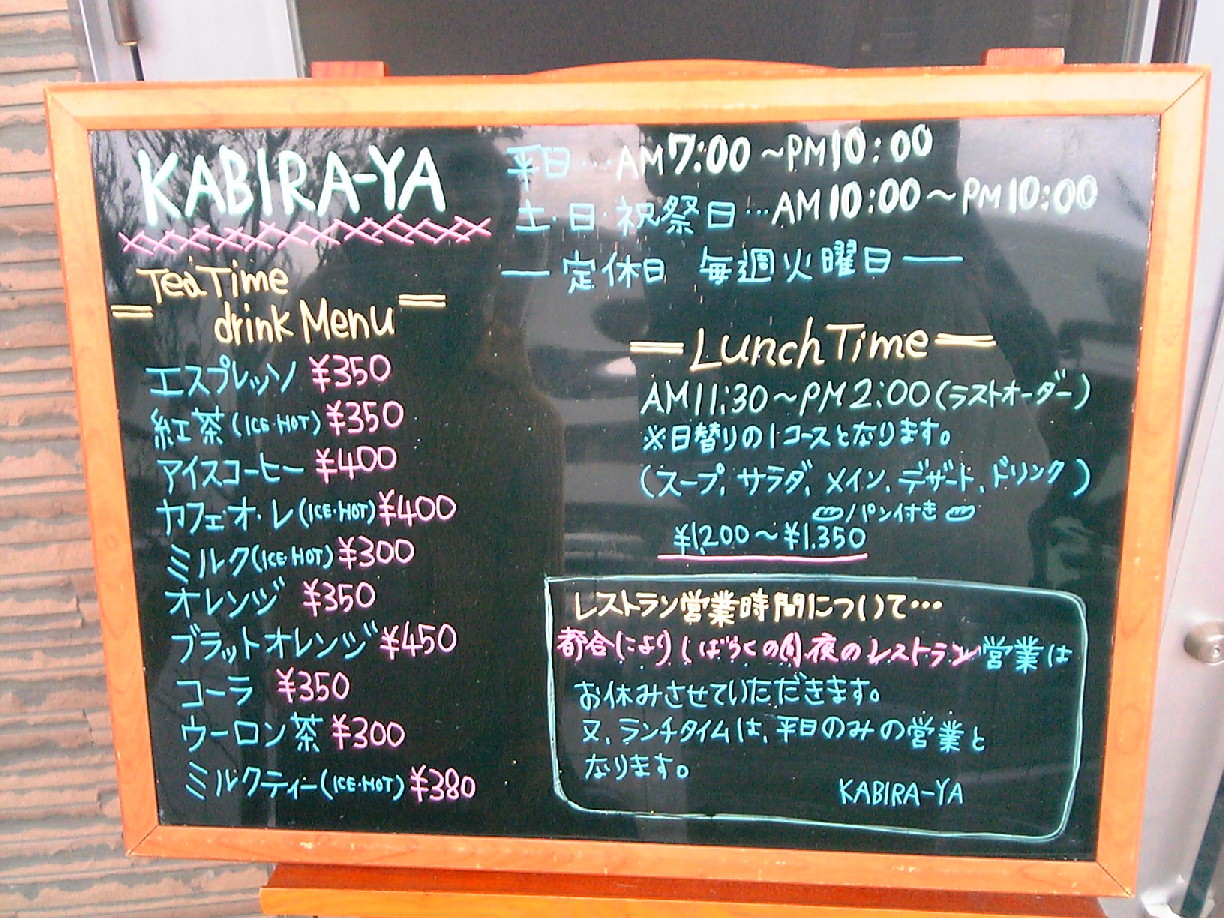 KABIRA-YA
平日…AM7:00～PM10:00
土・日・祝祭日…AM10:00～PM10:00
― 定休日 毎週火曜日 ―
Tea Time
drink Menu
エスプレッソ ¥350
紅茶(ICE・HOT) ¥350
アイスコーヒー ¥400
カフェオ・レ(ICE・HOT) ¥400
ミルク(ICE・HOT) ¥300
オレンジ ¥350
ブラットオレンジ ¥450
コーラ ¥350
ウーロン茶 ¥300
ミルクティー(ICE・HOT) ¥380
Lunch Time
AM11:30～PM2:00(ラストオーダー)
※日替りの1コースとなります。
(スープ、サラダ、メイン、デザート、ドリンク)
パン付き
¥1,200～¥1,350
レストラン営業時間について…
都合によりしばらくの間夜のレストラン営業は
お休みさせていただきます。
又、ランチタイムは、平日のみの営業と
なります。
KABIRA-YA